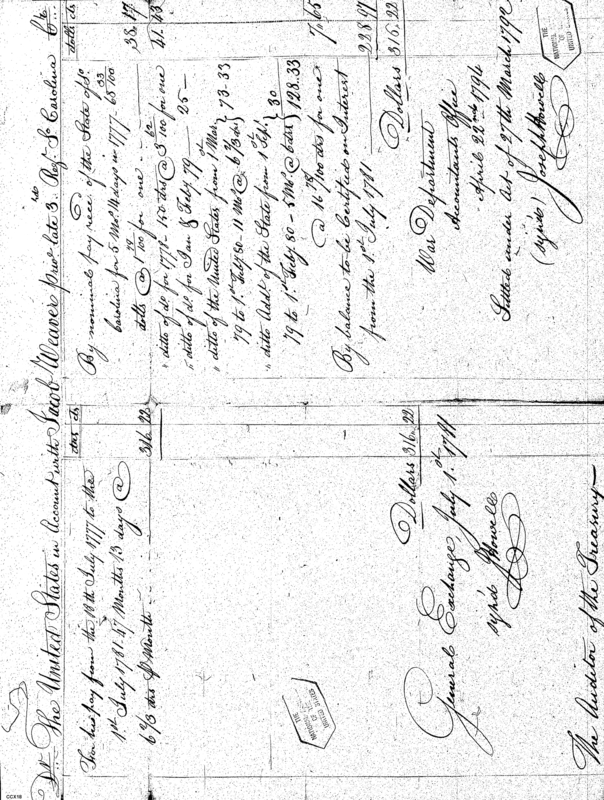 Dr. The United States in Account with Jacob Weaver priv. late 3. Regt. So Carolina Cr.
dlrs cts
For his pay from the 18th July 1777 to the
1st July 1781. 47 Months 13 days @
6 2/3 drs P Month 316.22
Dollars 316.22
General Exchange, July 1st 1781
sign'd J Howell
The Auditor of the Treasury
dolls cts
By nominal pay rece. of the State of So.
Carolina for 5 Mo. days in 1777
dolls @ 100 for one 38.17
" ditto of do. for 1778- 150 drs @ 100 for one 41.43
" ditto of do. for Jan & Feby 79 25
" ditto of the United States from 1 Mar.
79 to 1st Feby 80- 11 Mo. @ 6 2/3 drs } 73.33
" ditto Addl. of the State from 1 Sept.
79 to 1st Feby 80 - 5 Mo. @ } 30 } 128.33
@ 16 78/100 drs for one 7.65
By balance to be Certified on Interest
from the 1st July 1781 228.97
Dollars 316.22
War Department
Accountants Office
April 22nd 1794
Settled under Act of 27th March 1792
(sign'd) Joseph Howell
THE NATIONAL ARCHIVES OF THE UNITED STATES
CCX18